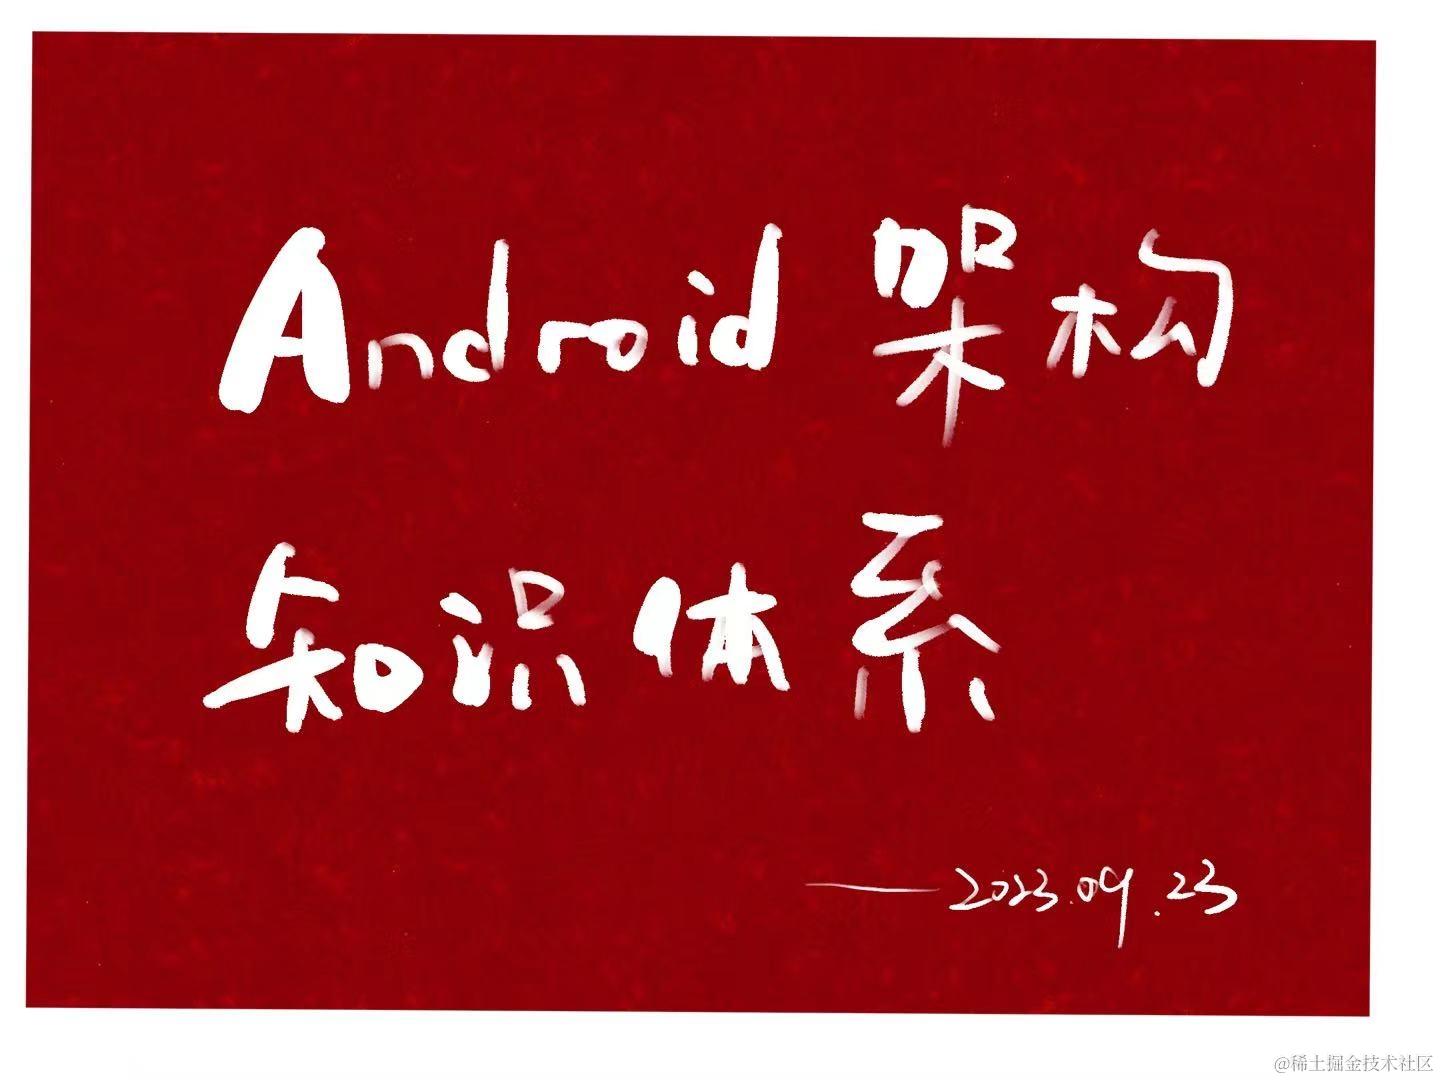 Android 架构
知识体系
——2023.09.23
@稀土掘金技术社区